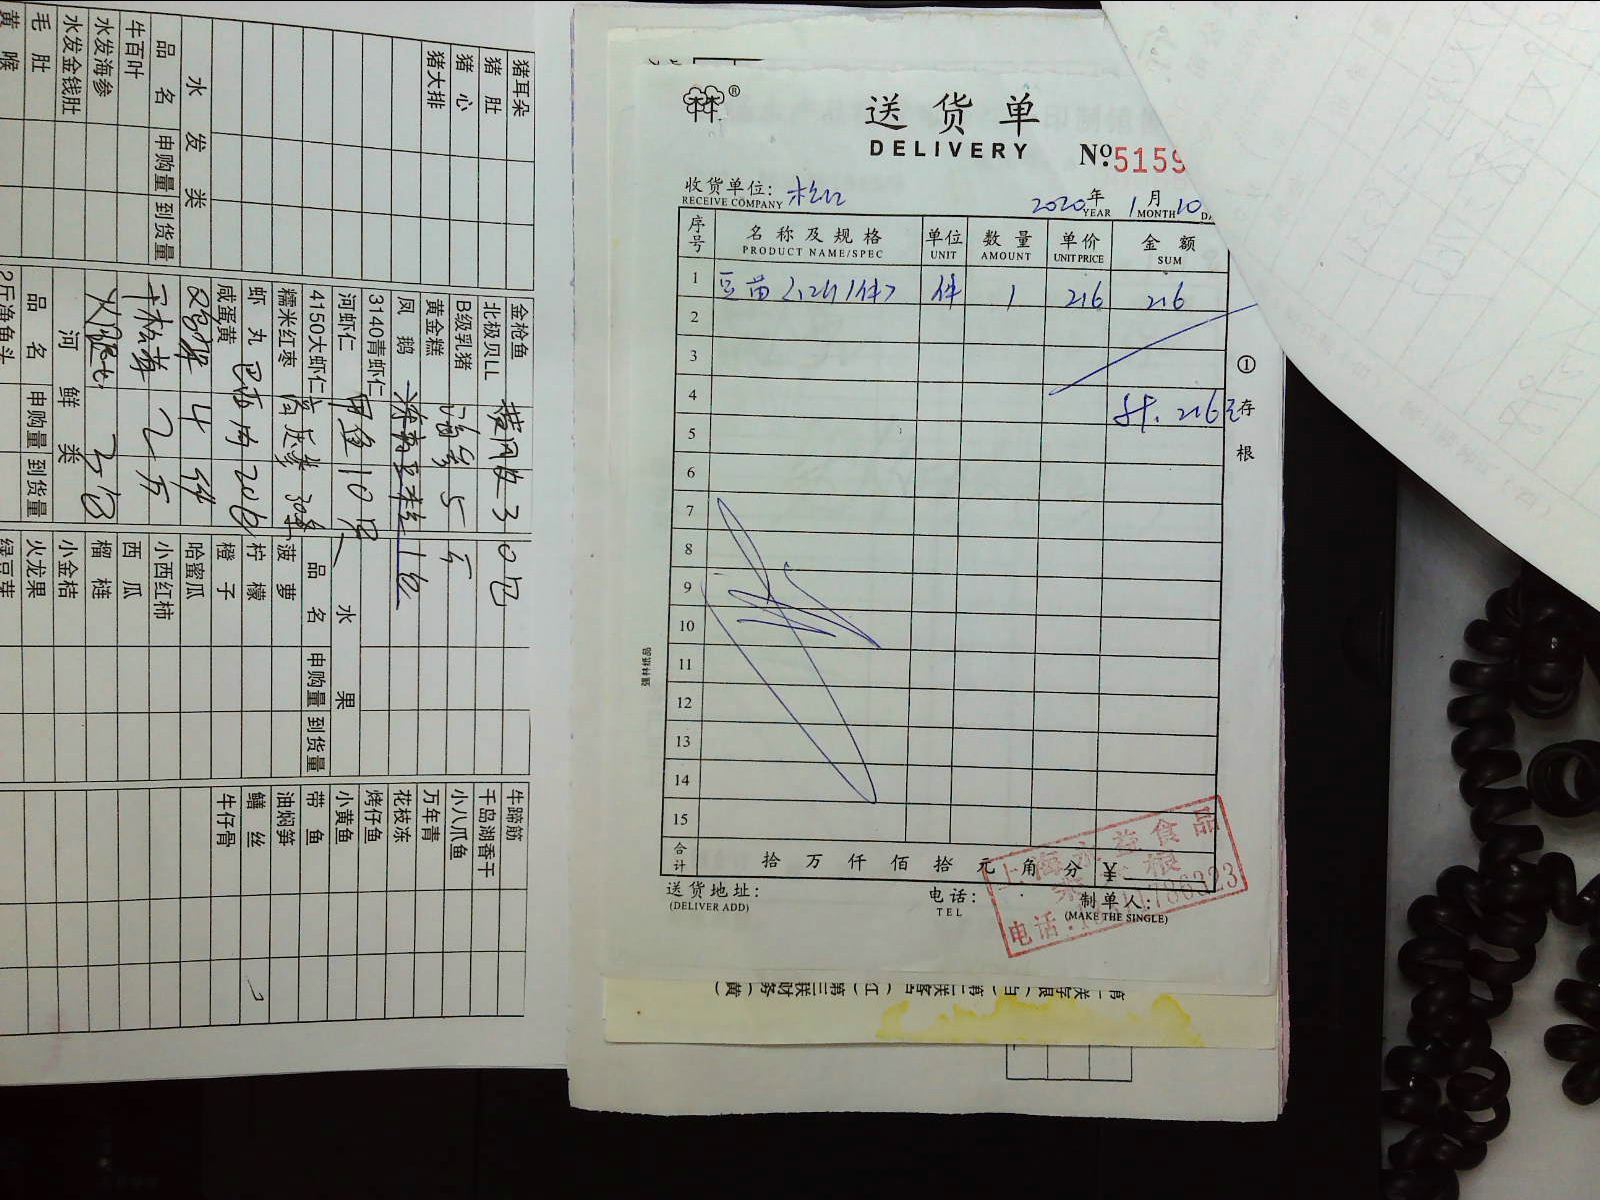 送货单
DELIVERY
Nº.5159
收货单位: 松江
RECEIVE COMPANY
2020年 1月 10
YEAR MONTH
序号 名称及规格 单位 数量 单价 金额
PRODUCT NAME/SPEC UNIT AMOUNT UNIT PRICE SUM
1 豆苗 件 1 216 216
2
3
4 216元
5
6
7
8
9
10
11
12
13
14
15
合计 拾 万 仟 佰 拾 元 角 分 ¥:
送货地址: 电话: 制单人:
(DELIVER ADD) TEL (MAKE THE SINGLE)
①存根
强林纸品
上海永益食品
电话:
猪耳朵
猪肚
猪心
猪大排
水发类
品名 申购量 到货量
牛百叶
水发海参
水发金钱肚
毛肚
黄喉
金枪鱼
北极贝LL
B级乳猪
黄金糕
凤鹅
3140青虾仁
河虾仁
4150大虾仁
糯米红枣
虾丸
咸蛋黄
甲鱼10只
巴西肉
河鲜类
品名 申购量 到货量
2斤净鱼头
水果
品名 申购量 到货量
菠萝
柠檬
橙子
哈蜜瓜
小西红柿
西瓜
榴梿
小金桔
火龙果
绿豆芽
牛蹄筋
千岛湖香干
小八爪鱼
万年青
花枝冻
烤仔鱼
小黄鱼
带鱼
油焖笋
鳝丝
牛仔骨